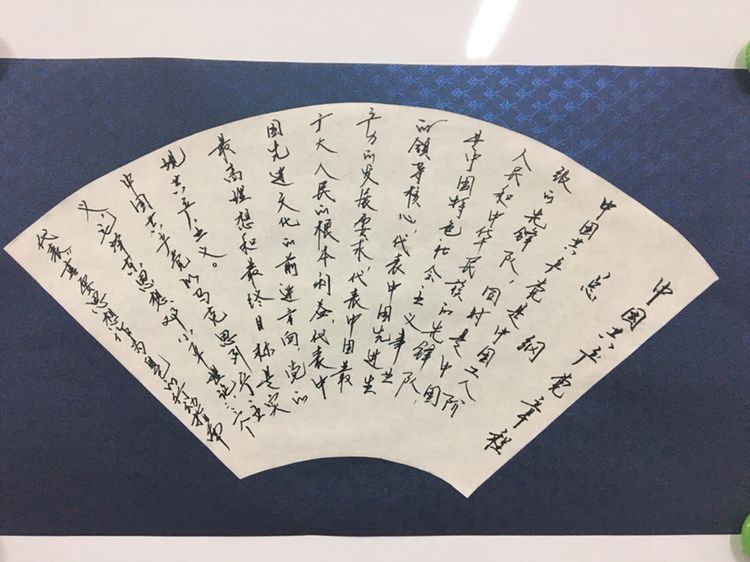 中国共产党章程
总纲
中国共产党是中国工人阶
级的先锋队，同时是中国
人民和中华民族的先锋队，
是中国特色社会主义事业
的领导核心，代表中国先进生
产力的发展要求，代表中国最
广大人民的根本利益，代表中
国先进文化的前进方向。党的
最高理想和最终目标是实
现共产主义。
中国共产党以马克思列宁主
义、毛泽东思想、邓小平理论、三个
代表重要思想作为自己的行动指南